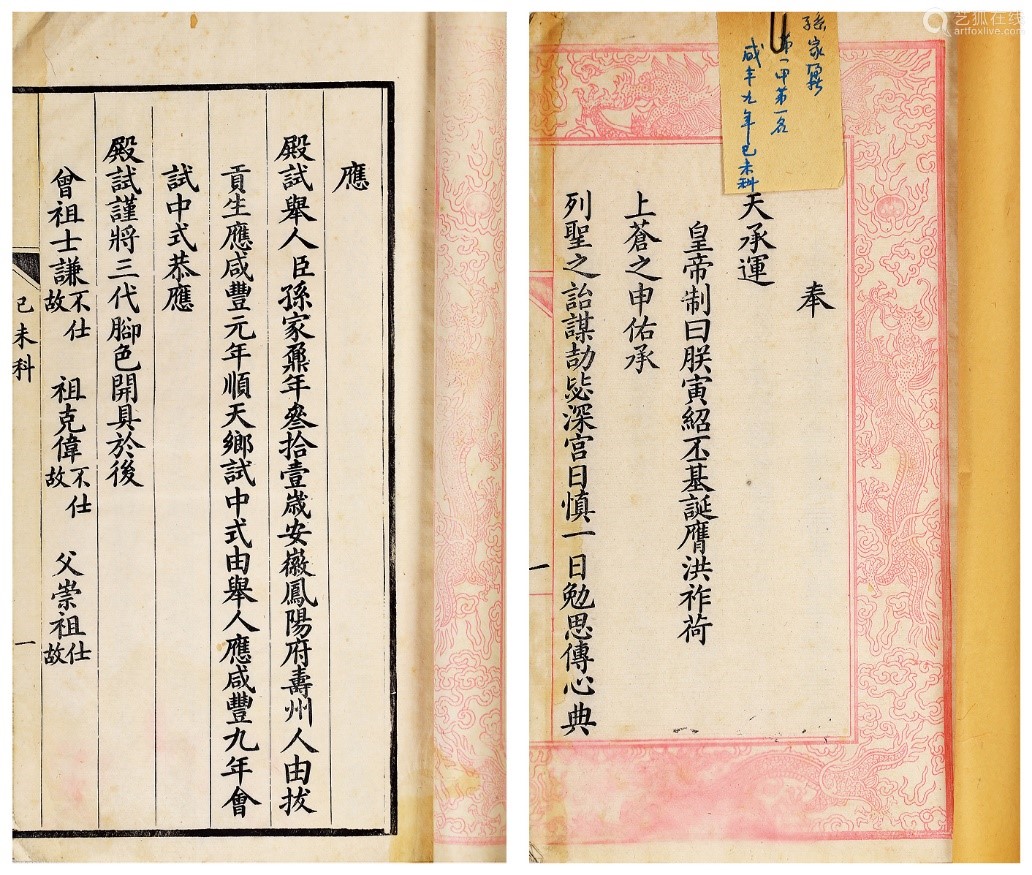 應
殿試舉人臣孫家鼐年叁拾壹歲安徽鳳陽府壽州人由拔
貢生應咸豐元年順天鄉試中式由舉人應咸豐九年會
試中式恭應
殿試謹將三代腳色開具於後
曾祖士謙不仕故 祖克偉不仕故 父崇祖仕故
己未科
一
孫家鼐
第一甲第一名
咸丰九年己未科
奉
天承運
皇帝制曰朕寅紹丕基誕膺洪祚荷
上蒼之申佑承
列聖之詒謀劼毖深宮日慎一日勉思傳心典
一
艺狐在线
artfoxlive.com